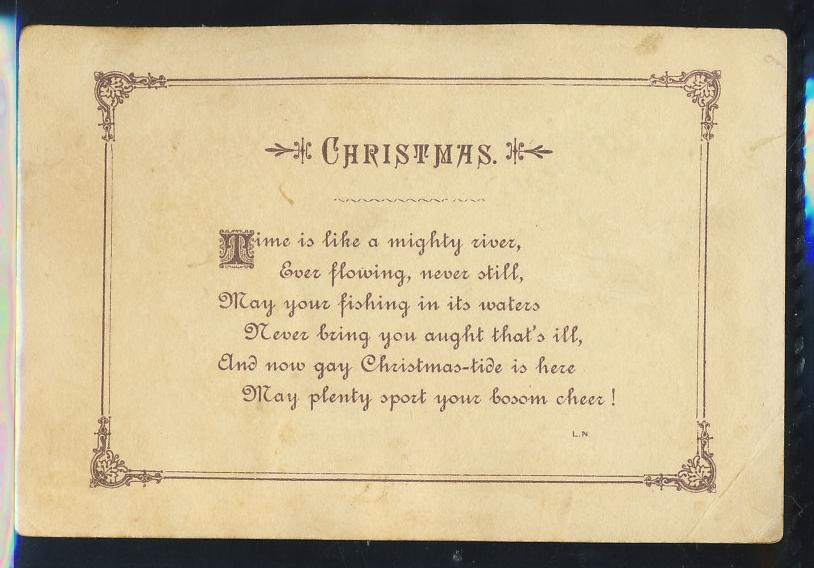 CHRISTMAS.
Time is like a mighty river,
Ever flowing, never still,
May your fishing in its waters
Never bring you aught that's ill,
And now gay Christmas-tide is here
May plenty sport your bosom cheer!
L.N